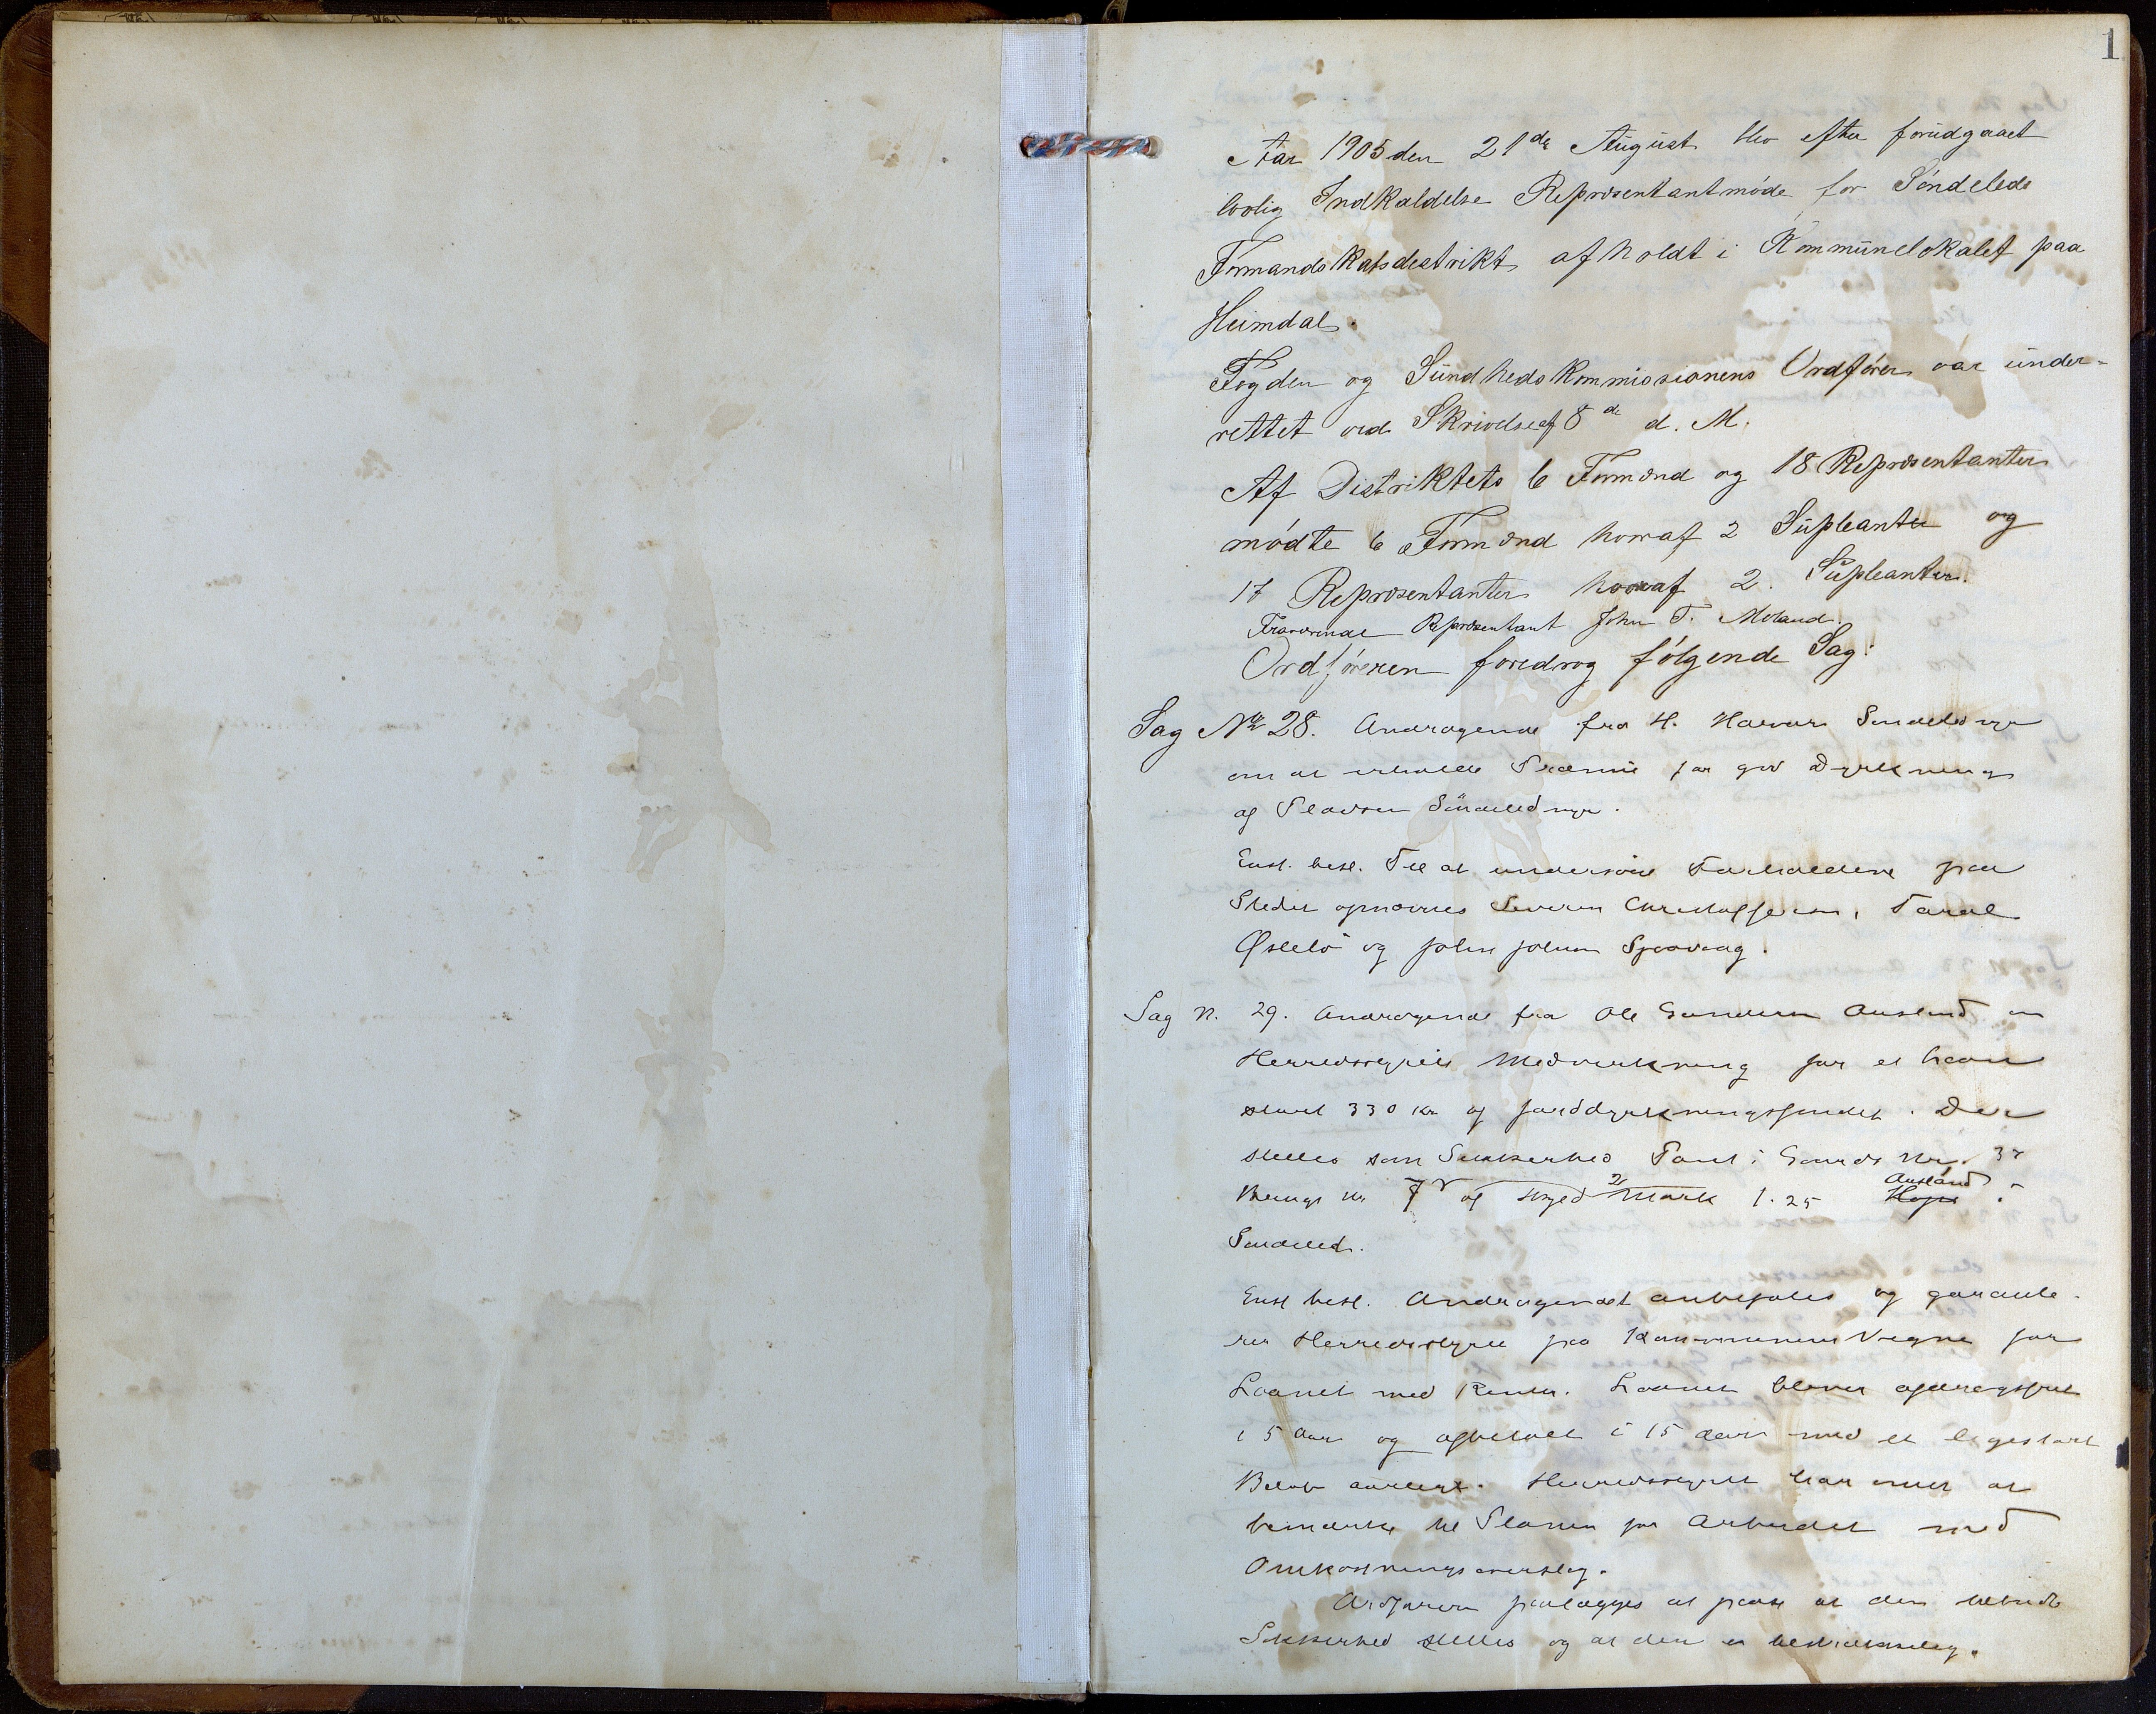 1
Aar 1905 den 21de August blev efter forudgaaet
lovlig Indkaldelse Repræsentantmøde for Søndeleds
Formandskabsdistrikt afholdt i Kommunelokalet paa
Heimdal.
Fogden og Sundhedskommissionens Ordfører var under-
rettet ved Skrivelse af 8de d. M.
Af Distriktets 6 Formænd og 18 Repræsentanter
mødte 6 Formænd hvoraf 2 Supleanter og
17 Repræsentanter hvoraf 2. Supleanter.
Fraværende Repræsentant John T. Moland.
Ordføreren foredrog følgende Sag:
Sag No 28. Andragende fra H. Søndeled
om at erholde Præmie for god Dyrkning
af Pladsen Søndeled
Enst. besl. Til at undersøge Forholdene paa
Stedet opnævnes Severin Christoffersen, Taral
Østelø og John
Sag N. 29. Andragende fra Ole Gundersen Ausland om
Herredsstyrets Medvirkning for et Laan
stort 330 Kr af Jorddyrkningsfondet. Der
stilles som Sikkerhed Pant i Gaards Nr. 37
Brugs Nr 7 af Skyld Mark 1.25 Ausland i
Søndeled.
Enst besl. Andragendet anbefales og garante-
rer Herredsstyret paa Kommunens Vegne for
Laanet med Renter. Laanet bliver afdragsfrit
i 5 Aar og afbetalt i 15 Aar med et ligestort
Beløb aarligt. Herredsstyret har intet at
bemærke til Planen for Arbeidet med
Omkostningsoverslag.
Ordføreren paalægges at paase at den tilbudte
Sikkerhed stilles og at den er betryggende.